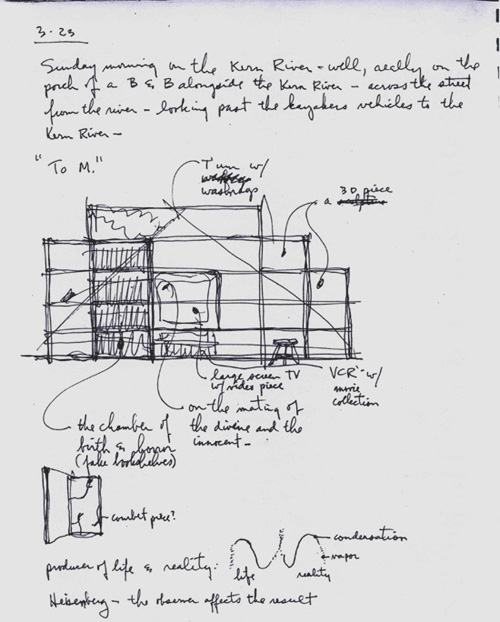 3·23
Sunday morning on the Kern River - well, really on the
porch of a B & B alongside the Kern River - across the street
from the river - looking past the kayakers vehicles to the
Kern River -
"To M."
Turn w/
washrags
3D piece
a
large screen TV
w/ video piece
VCR - w/
movie
collection
on the mating of
the divine and the
innocent -
the chamber of
birth & horror
(fake bookshelves)
courbet piece?
condensation
vapor
producer of life & reality:
life
reality
Heisenberg - the observer affects the result